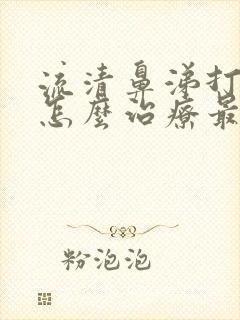 流清鼻涕打
怎麼治療最
粉泡泡